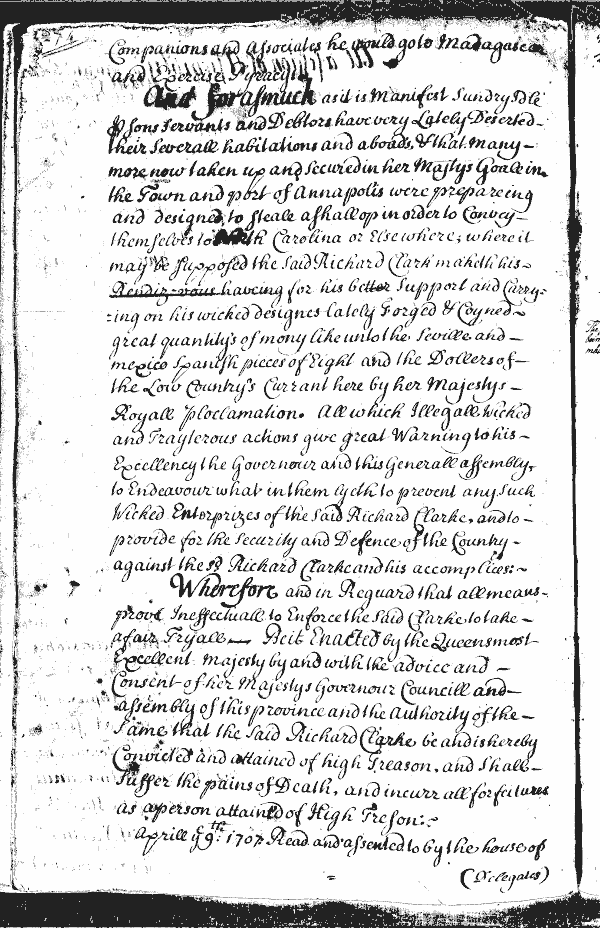 Companions and Associates he would goto Madagascar
and Exercise Pyracy
And forasmuch as it is Manifest Sundry Idle
Psons Servants and Debtors have very Lately Deserted
their Severall habitations and aboads, & that many
more now taken up and Secured in her Majtys Goale in
the Town and port of Annapolis were prepareing
and designed to steale a shallop in order to Convey
themselves to North Carolina or Elsewhere; where it
may be supposed the said Richard Clark maketh his
Rendiz-vous haveing for his better Support and Carry-
ing on his wicked designes Lately Forged & Coyned
great quantitys of mony like unto the Seville and
mexico Spanish pieces of Eight and the Dollers of
the Low Country's Currant here by her Majestys
Royall ploclamation. All which Illegall wicked
and Trayterous actions give great Warning to his
Excellency the Governour and this Generall assembly,
to Endeavour what in them lyeth to prevent any such
Wicked Enterprizes of the Said Richard Clarke, and to
provide for the Security and Defence of the Country
against the sd Richard Clarke and his accomplices:
Wherefore and in Reguard that all means
prove Ineffectuall to Enforce the Said Clarke to take
a fair Tryall Beit Enacted by the Queens most
Excellent Majesty by and with the advice and
Consent of her Majestys Governour Councill and
assembly of this province and the Authority of the
Same that the Said Richard Clarke be and is hereby
Convicted and attained of high Treason, and Shall
Suffer the pains of Death, and incurr all forfeitures
as a person attained of High Treson:
Aprill ye 9th: 1707 Read and assented to by the house of
(Delegates)